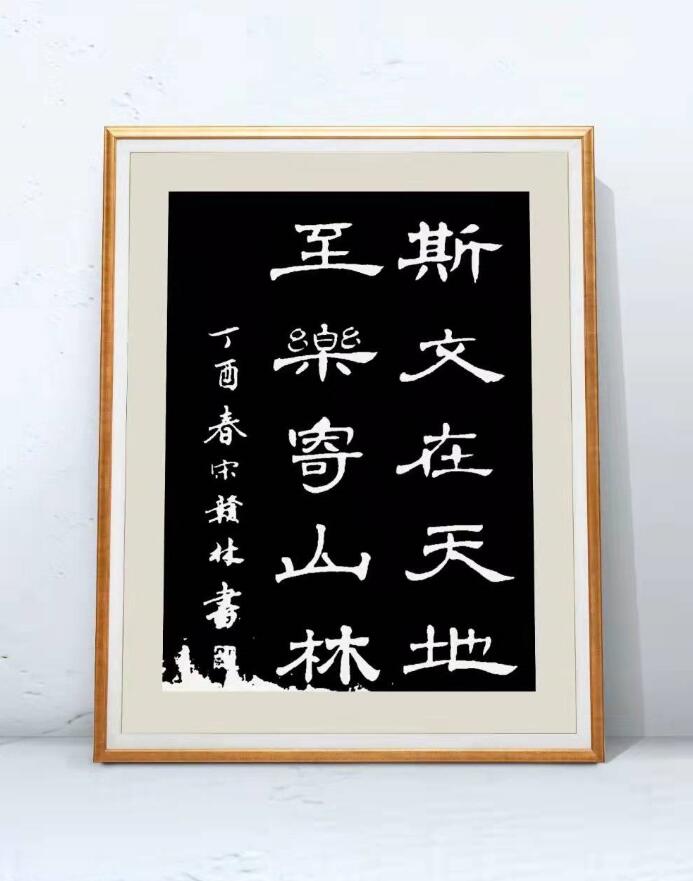 斯文在天地
至樂寄山林
丁酉春宋贛林書